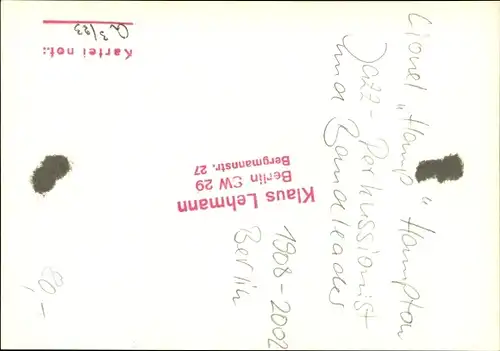 Lionel "Hamp" Hampton
Jazz-Perkussionist
und Bandleader
1908-2002
Berlin
Klaus Lehmann
Berlin SW 29
Bergmannstr. 27
Kartei not.:
a 3/23
80,-